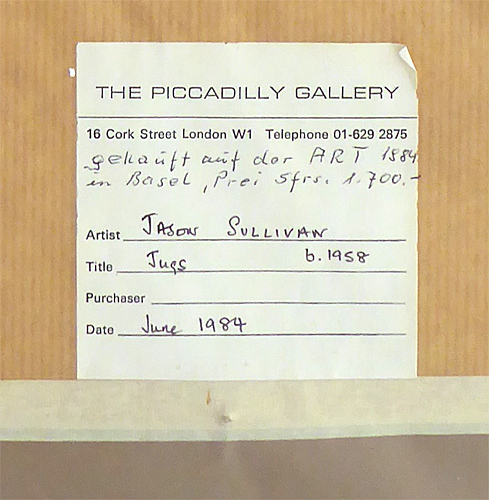 THE PICCADILLY GALLERY
16 Cork Street London W1 Telephone 01-629 2875
gekauft auf der ART 1984
in Basel, Prei Sfrs. 1.700.-
Artist JASON SULLIVAN
Title Jugs b. 1958
Purchaser
Date June 1984